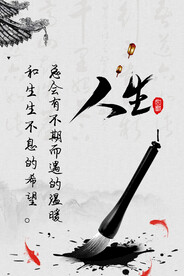 人生
总会有不期而遇的温暖
和生生不息的希望。